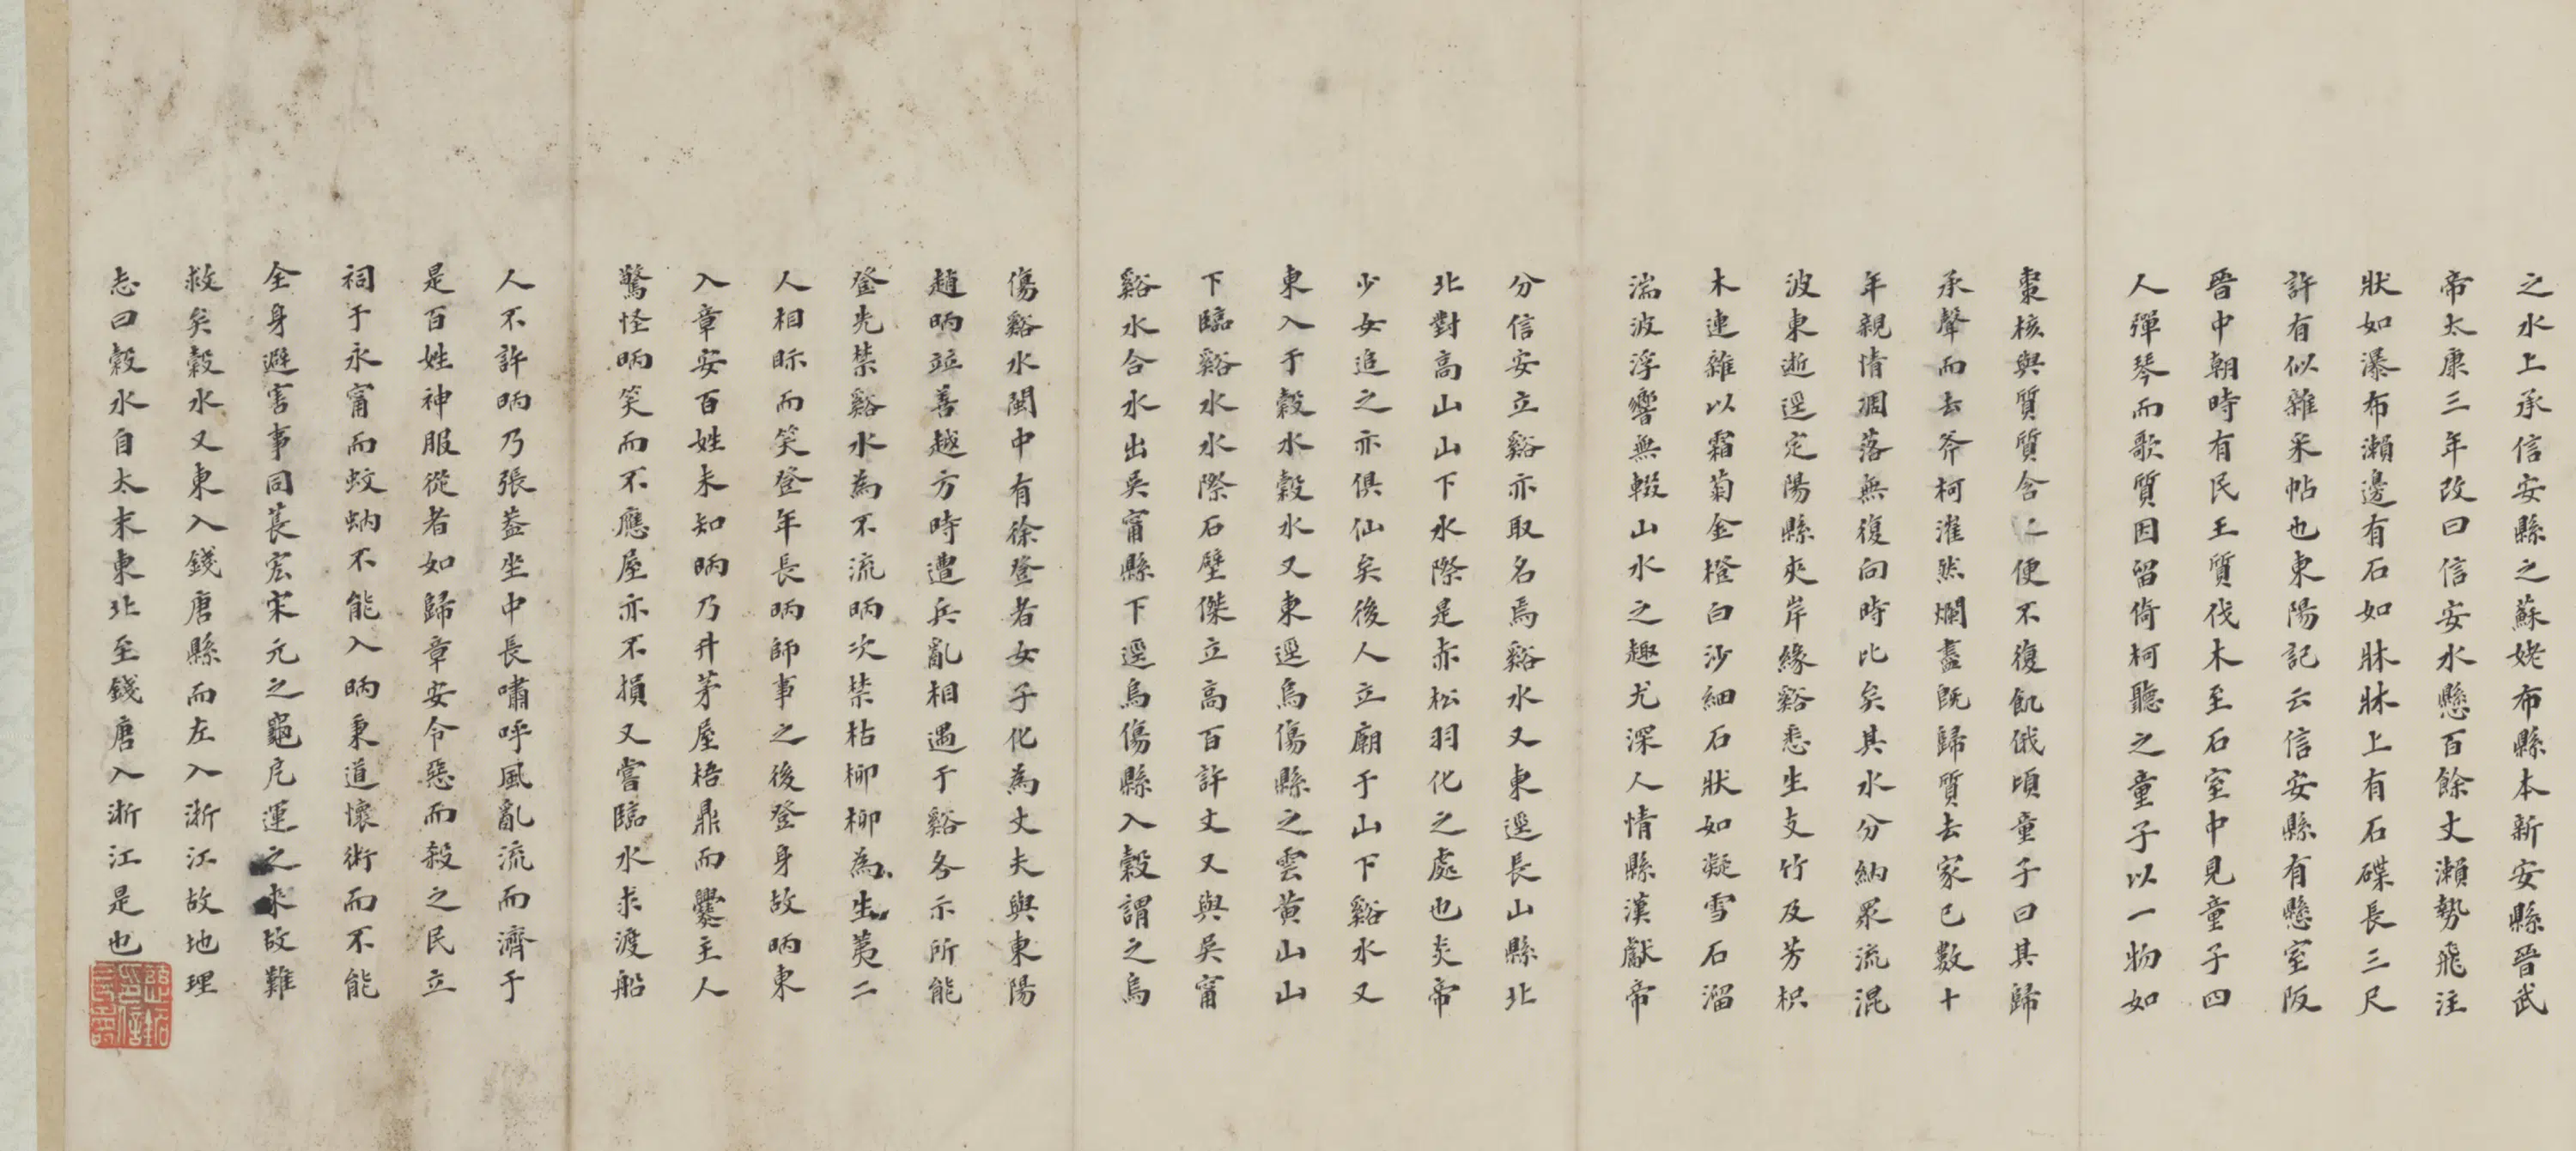 之水上承信安縣之蘇姥布縣本新安縣晉武
帝太康三年改曰信安水懸百餘丈瀨勢飛注
狀如瀑布瀨邊有石如牀牀上有石碟長三尺
許有似雜采帖也東陽記云信安縣有懸室阪
晉中朝時有民王質伐木至石室中見童子四
人彈琴而歌質因留倚柯聽之童子以一物如
棗核與質質含之便不復飢俄頃童子曰其歸
承聲而去斧柯漼然爛盡既歸質去家已數十
年親情凋落無復向時比矣其水分納眾流混
波東逝逕定陽縣夾岸緣谿悉生支竹及芳枳
木連雜以霜菊金橙白沙細石狀如凝雪石溜
湍波浮響無輟山水之趣尤深人情縣漢獻帝
分信安立谿亦取名焉谿水又東逕長山縣北
北對高山山下水際是赤松羽化之處也炎帝
少女追之亦俱仙矣後人立廟于山下谿水又
東入于穀水穀水又東逕烏傷縣之雲黃山山
下臨谿水水際石壁傑立高百許丈又與吳甯
谿水合水出吳甯縣下逕烏傷縣入穀謂之烏
傷谿水閩中有徐登者女子化為丈夫與東陽
趙昞竝善越方時遭兵亂相遇于谿各示所能
登先禁谿水為不流昞次禁枯柳柳為生荑二
人相眎而笑登年長昞師事之後登身故昞東
入章安百姓未知昞乃升茅屋梧鼎而爨主人
驚怪昞笑而不應屋亦不損又嘗臨水求渡船
人不許昞乃張蓋坐中長嘯呼風亂流而濟于
是百姓神服從者如歸章安令惡而殺之民立
祠于永甯而蚊蚋不能入昞秉道懷術而不能
全身避害事同萇宏宋元之龜厄運之來故難
救矣穀水又東入錢唐縣而左入浙江故地理
志曰穀水自太末東北至錢唐入浙江是也